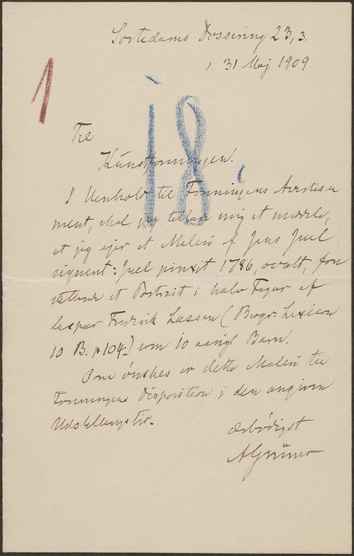 Sortedams Dossering 23, 3
, 31 Maj 1909
1
18,
Til
Kunstforeningen.
I Henhold til Foreningens Avertisse
ment, skal jeg tillade mig at melde,
at jeg ejer et Maleri af Jens Juel,
signeret: Juel pinxit 1786, ovalt, fore
stillende et Portrait i halv Figur af
Kaspar Fredrik Lassen (Biogr. Lexicon
10 B. p 104) som 10 aarigt Barn.
Om ønskes er dette Maleri til
Foreningens Disposition i den angivne
Udstillingstid.
ærbødigst